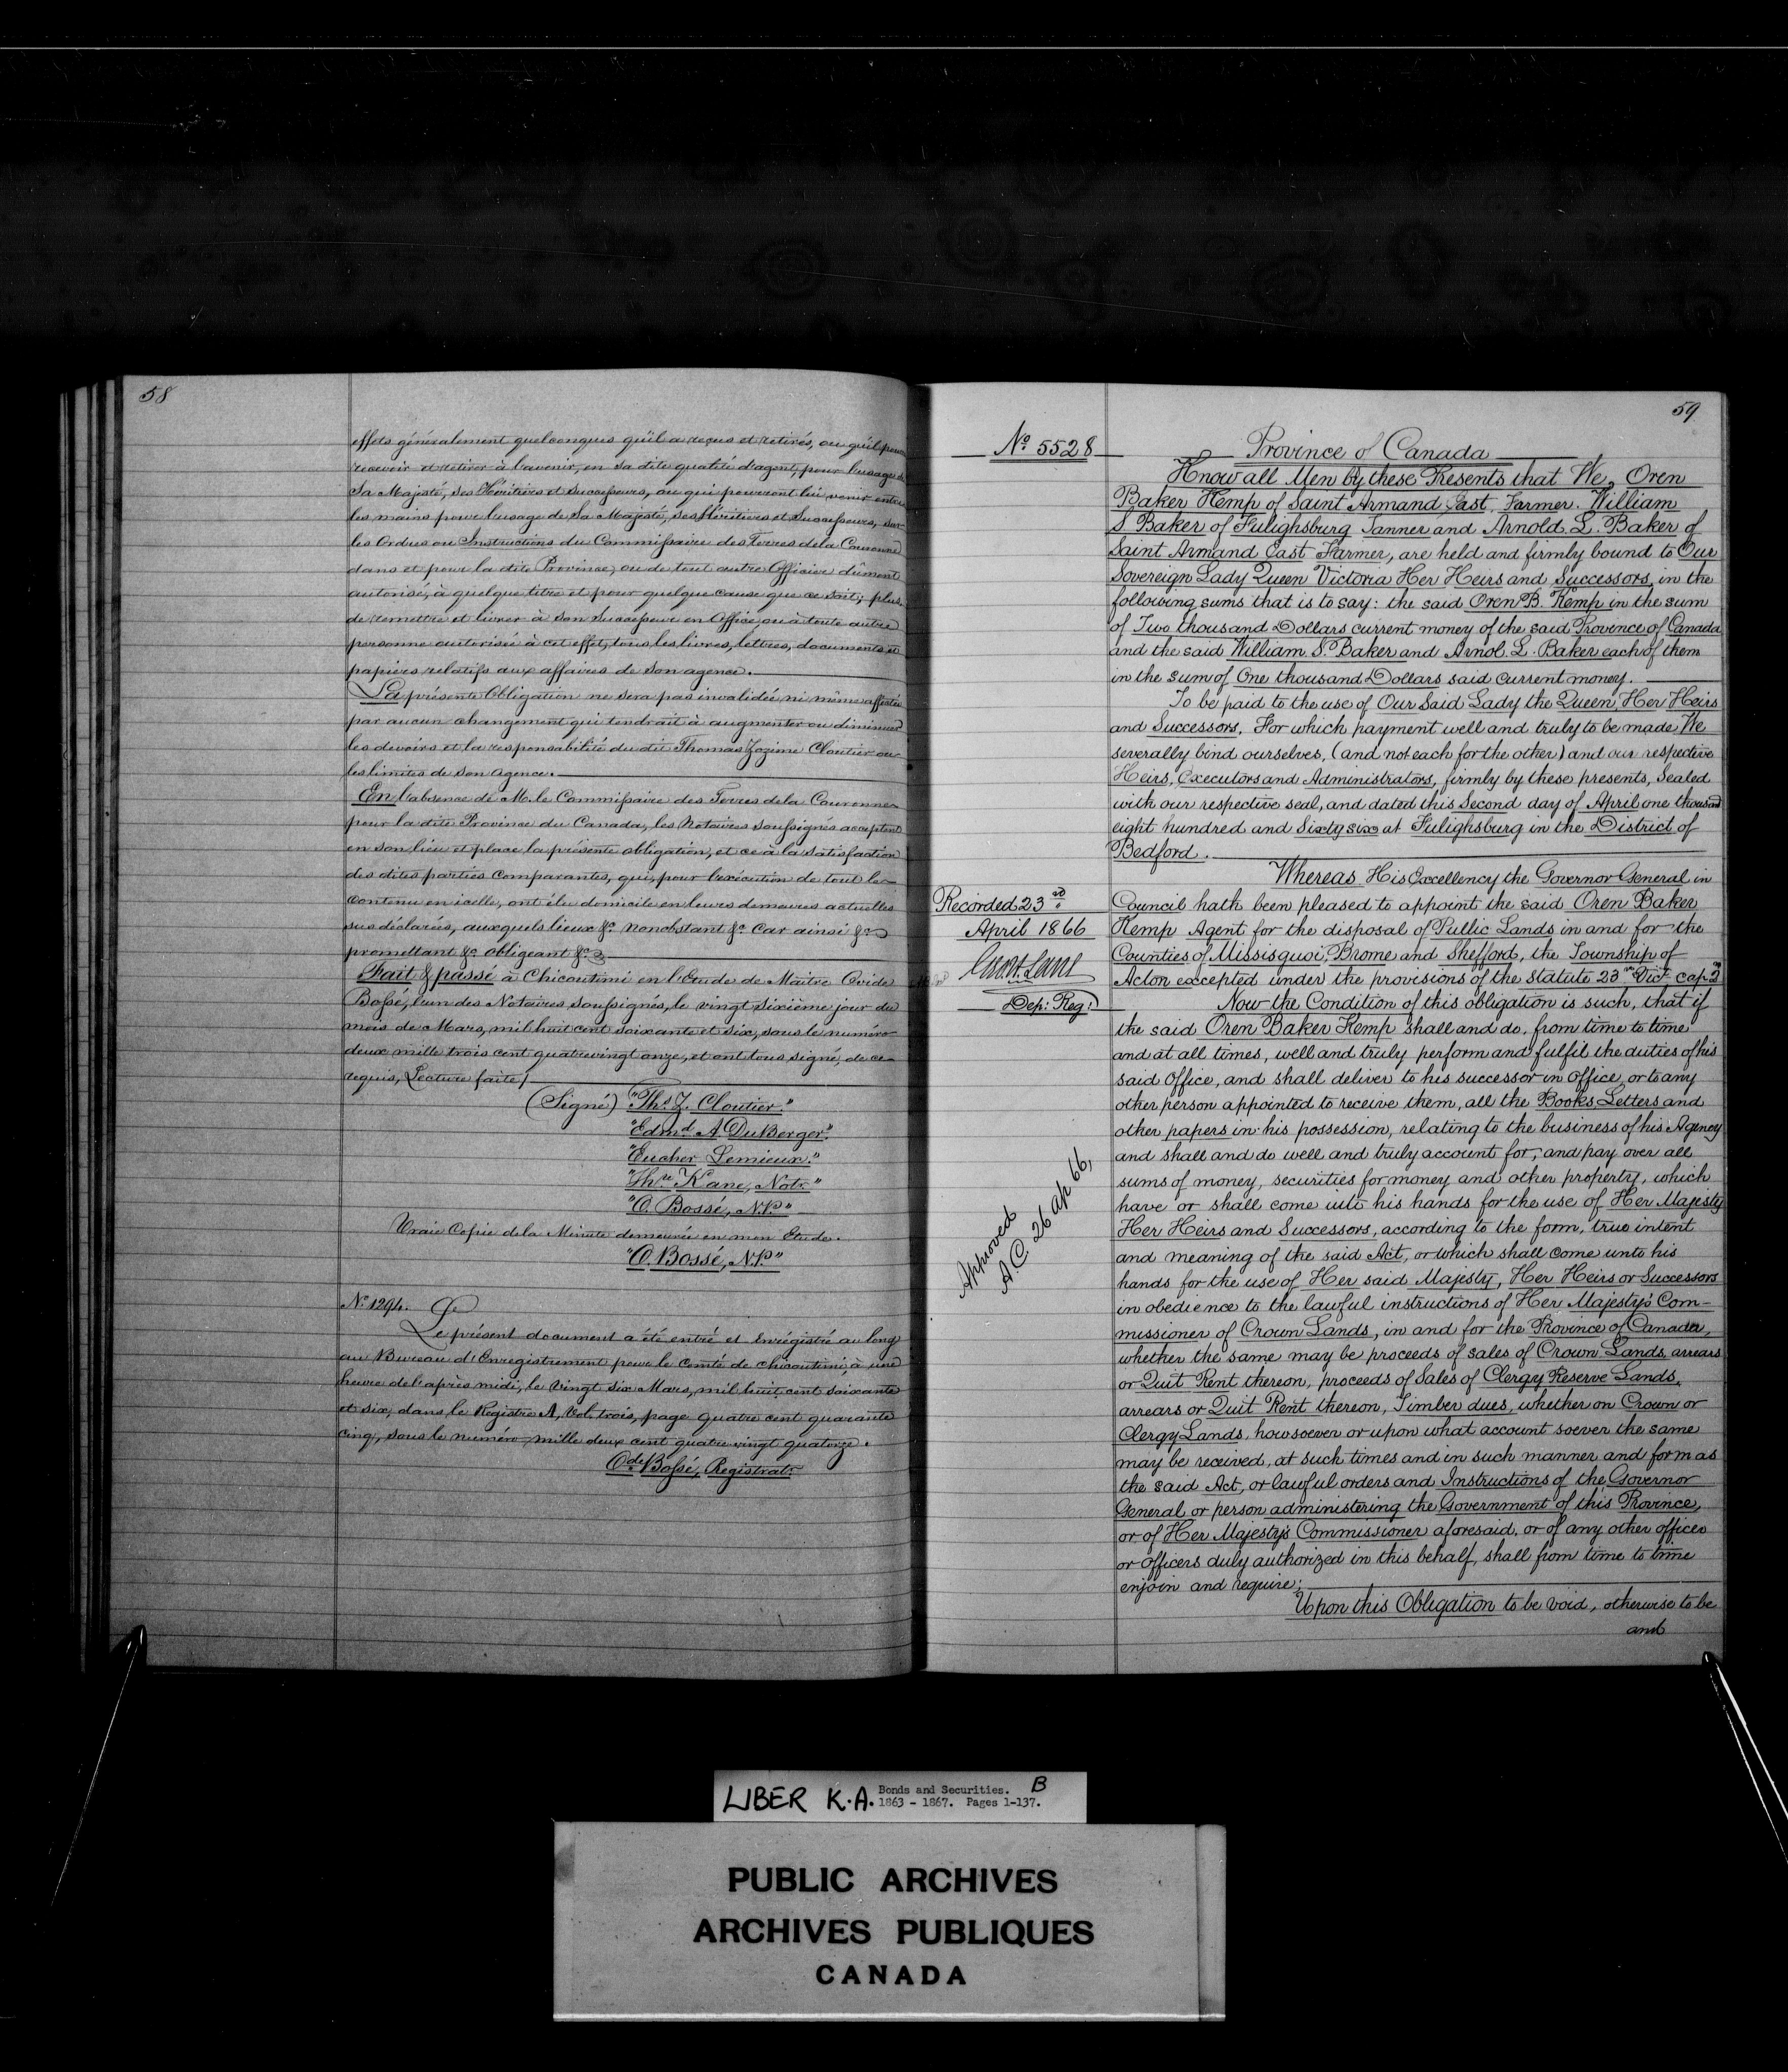 58
effets généralement quelconques qu'il a reçus et retirés, ou qu'il pourra
recevoir et retirer à l'avenir, en sa dite qualité d'agent, pour l'usage de
Sa Majesté, Ses Héritiers et Successeurs, ou qui pourront lui venir entre
les mains pour l'usage de Sa Majesté, Ses Héritiers et Successeurs, sur
les Ordres ou Instructions du Commissaire des Terres de la Couronne
dans et pour la dite Province, ou de tout autre Officier dûment
autorisé, à quelque titre et pour quelque cause que ce soit; plus
de remettre et livrer à son Successeur en Office, ou à toute autre
personne autorisée à cet effet, tous les livres, lettres, documents et
papiers relatifs aux affaires de son agence.
La présente Obligation ne sera pas invalidée, ni même affectée
par aucun changement qui tendrait à augmenter ou diminuer
les devoirs et la responsabilité du dit Thomas Zozime Cloutier ou
les limites de son agence.
En l'absence de M. le Commissaire des Terres de la Couronne
pour la dite Province du Canada, les Notaires soussignés acceptent
en son lieu et place la présente obligation, et ce à la satisfaction
des dites parties comparantes, qui, pour l'exécution de tout le
contenu en icelle, ont élu domicile en leurs demeures actuelles
sus déclarées, auxquels lieux &c. Nonobstant &c. Car ainsi &c.
promettant &c. obligeant &c.
Fait & passé à Chicoutimi en l'Etude de Maitre Ovide
Bossé, l'un des Notaires soussignés, le vingt sixième jour du
mois de Mars, mil huit cent soixante et six, sous le numéro
deux mille trois cent quatrevingt onze, et ont tous signé, de ce
requis, Lecture faite/
(Signé) "Ths. Z. Cloutier."
"Edmd. A. DuBerger."
"Eucher Lemieux."
"Ths. Kane, Notr."
"O. Bossé, N.P."
Vraie Copie de la Minute demeurée en mon Etude.
"O. Bossé, N.P."
No. 1294.
Le présent document a été entré et Enrégistré au long
au Bureau d'Enregistrement pour le Comté de Chicoutimi, à une
heure de l'après midi, le Vingt six Mars, mil huit cent soixante
et six, dans le Registre A, Vol. trois, page quatre cent quarante
cinq, sous le numéro mille deux cent quatre vingt quatorze.
Ode. Bossé, Registrat.
59
No. 5528
Province of Canada
Know all Men by these Presents that We, Oren
Baker Kemp of Saint Armand East, Farmer. William
S Baker of Fulighsburg Tanner and Arnold. L. Baker of
Saint Armand East Farmer, are held and firmly bound to Our
Sovereign Lady Queen Victoria Her Heirs and Successors, in the
following sums that is to say: the said Oren B. Kemp in the sum
of Two thousand Dollars current money of the said Province of Canada
and the said William. S. Baker and Arnol. L. Baker each of them
in the sum of One thousand Dollars said current money.
To be paid to the use of Our Said Lady the Queen, Her Heirs
and Successors, For which payment well and truly to be made We
severally bind ourselves, (and not each for the other) and our respective
Heirs, Executors and Administrators, firmly by these presents, Sealed
with our respective seal, and dated this Second day of April one thousand
eight hundred and Sixty six at Fulighsburg in the District of
Bedford.
Whereas His Excellency the Governor General in
Council hath been pleased to appoint the said Oren Baker
Kemp Agent for the disposal of Public Lands in and for the
Counties of Missisquoi, Brome and Shefford, the Township of
Acton excepted under the provisions of the Statute 23rd Vict. cap. 2
Recorded 23rd
April 1866
Dep: Reg:
Approved
A.C. 26 Ap 66,
Now the Condition of this obligation is such, that if
the said Oren Baker Kemp shall and do, from time to time
and at all times, well and truly perform and fulfil the duties of his
said Office, and shall deliver to his successor in Office, or to any
other person appointed to receive them, all the Books, Letters and
other papers in his possession, relating to the business of his Agency
and shall and do well and truly account for, and pay over all
sums of money, securities for money and other property, which
have or shall come into his hands for the use of Her Majesty
Her Heirs and Successors, according to the form, true intent
and meaning of the said Act, or which shall come unto his
hands for the use of Her said Majesty, Her Heirs or Successors
in obedience to the lawful instructions of Her Majesty's Com-
missioner of Crown Lands, in and for the Province of Canada,
whether the same may be proceeds of sales of Crown Lands, arrears
or Quit Rent thereon, proceeds of Sales of Clergy Reserve Lands,
arrears or Quit Rent thereon, Timber dues, whether on Crown or
Clergy Lands, howsoever or upon what account soever the same
may be received, at such times and in such manner and form as
the said Act, or lawful orders and Instructions of the Governor
General or person administering the Government of this Province,
or of Her Majesty's Commissioner aforesaid, or of any other officer
or officers duly authorized in this behalf, shall from time to time
enjoin and require;
Upon this Obligation to be void, otherwise to be
and
LIBER K.A. Bonds and Securities. B
1863 - 1867. Pages 1-137.
PUBLIC ARCHIVES
ARCHIVES PUBLIQUES
CANADA